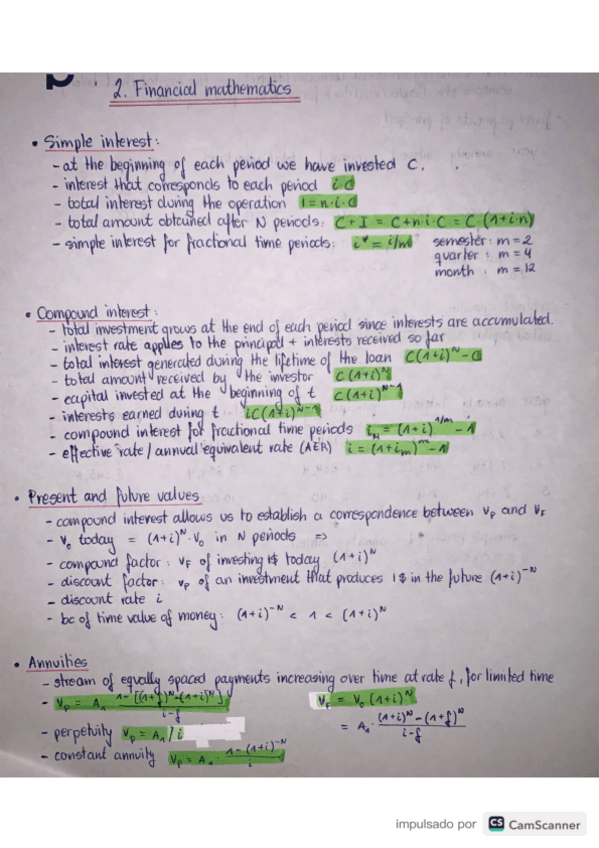 2. Financial mathematics
• Simple interest:
- at the beginning of each period we have invested C.
- interest that corresponds to each period i·C
- total interest during the operation I = n·i·C
- total amount obtained after N periods: C+I = C+n·i·C = C·(1+i·n)
- simple interest for fractional time periods: iᴹ = i/m semester: m = 2
quarter : m = 4
month : m = 12
• Compound interest:
- total investment grows at the end of each period since interests are accumulated.
- interest rate applies to the principal + interests received so far
- total interest generated during the lifetime of the loan C(1+i)ᴺ - C
- total amount received by the investor C(1+i)ᴺ
- capital invested at the beginning of t C(1+i)ᴺ⁻¹
- interests earned during t iC(1+i)ᴺ⁻¹
- compound interest for fractional time periods iₘ = (1+i)^1/m - 1
- effective rate / annual equivalent rate (AER) i = (1+iₘ)ᵐ - 1
• Present and future values
- compound interest allows us to establish a correspondence between Vₚ and V_F
- V₀ today = (1+i)ᴺ·V₀ in N periods =>
- compound factor: V_F of investing 1$ today (1+i)ᴺ
- discount factor: Vₚ of an investment that produces 1$ in the future (1+i)⁻ᴺ
- discount rate i
- bc of time value of money: (1+i)⁻ᴺ < 1 < (1+i)ᴺ
• Annuities
- stream of equally spaced payments increasing over time at rate f, for limited time
- Vₚ = A₁ 1-[(1+f)ᴺ-(1+i)ᴺ] / i-f V_F = V₀(1+i)ᴺ
= A₁· (1+i)ᴺ-(1+f)ᴺ / i-f
- perpetuity Vₚ = A₁/i
- constant annuity Vₚ = A₁· 1-(1+i)⁻ᴺ / i
impulsado por CS CamScanner